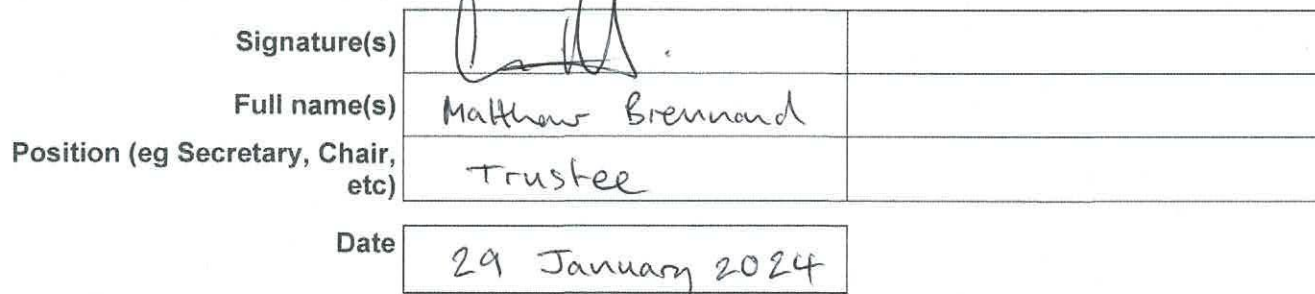 Signature(s)
Full name(s) Matthew Brennand
Position (eg Secretary, Chair, etc) Trustee
Date 29 January 2024